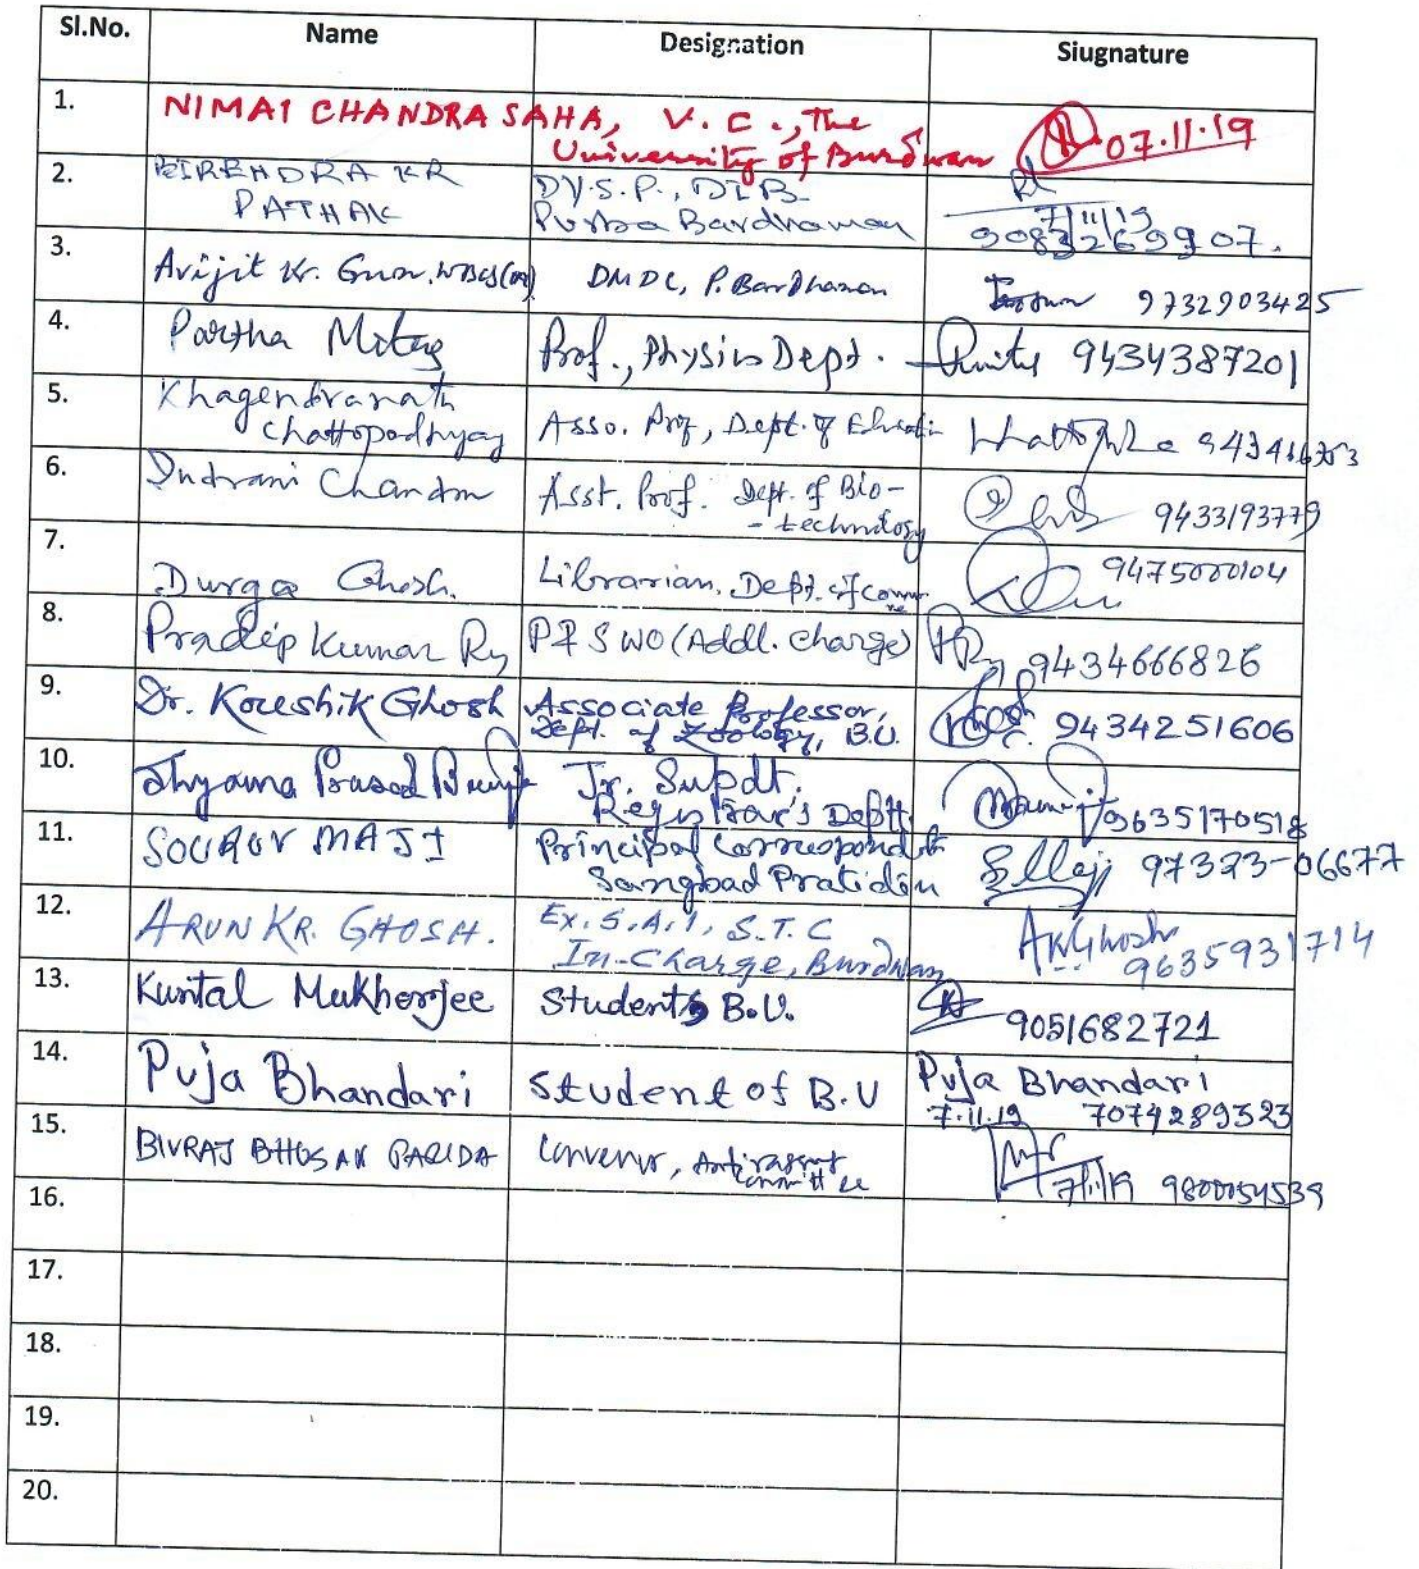 Sl.No. Name Designation Siugnature
1. NIMAI CHANDRA SAHA, V.C., The
University of Burdwan 07.11.19
2. BIRENDRA KR DY.S.P., DIB
PATHAK Purba Bardhaman 7/11/19
9083269907.
3. Avijit Kr. WBCS DMDC, P. Bardhaman 9732903425
4. Partha Mitra Prof., Physics Dept. 9434387201
5. Khagendranath
Chattopadhyay Asso. Prof, Dept. of Education
6. Indrani Chandra Asst. Prof. Dept. of Bio-
- technology 9433193779
7. Durga Ghosh. Librarian, Dept. of Comm 9475000104
8. Pradip Kumar Ry (Addl. charge) 9434666826
9. Dr. Koushik Ghosh Associate Professor,
Dept. of Zoology, B.U. 9434251606
10. Shyama Prasad Jr. Supdt.
Registrar's Deptt. 9635170518
11. SOURAV MAJI Principal Correspondent
Sangbad Pratidin SMaji 97323-06677
12. ARUN KR. GHOSH. Ex. S.A.I, S.T.C
In-Charge, Burdwan AKGhosh
9635931714
13. Kuntal Mukherjee Students B.U. 9051682721
14. Puja Bhandari Student of B.U Puja Bhandari
7.11.19 7074289323
15. BIVRAJ BHUSAN PARIDA Convenor,
Committee 7/11/19
16.
17.
18.
19.
20.